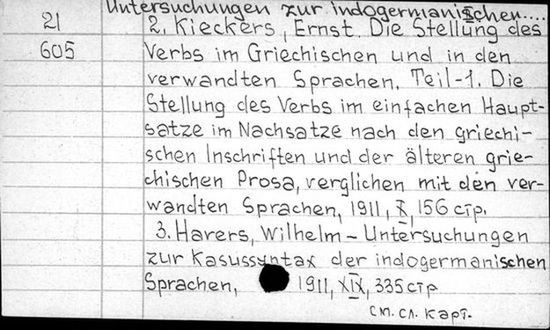 Untersuchungen zur indogermanischen....
21
2. Kieckers, Ernst. Die Stellung des
605
Verbs im Griechischen und in den
verwandten Sprachen. Teil-1. Die
Stellung des Verbs im einfachen Haupt-
satze im Nachsatze nach den griechi-
schen Inschriften und der älteren grie-
chischen Prosa, verglichen mit den ver-
wandten Sprachen, 1911, X, 156 стр.
3. Havers, Wilhelm - Untersuchungen
zur Kasussyntax der indogermanischen
Sprachen, 1911, XIX, 335 стр
см. сл. карт.